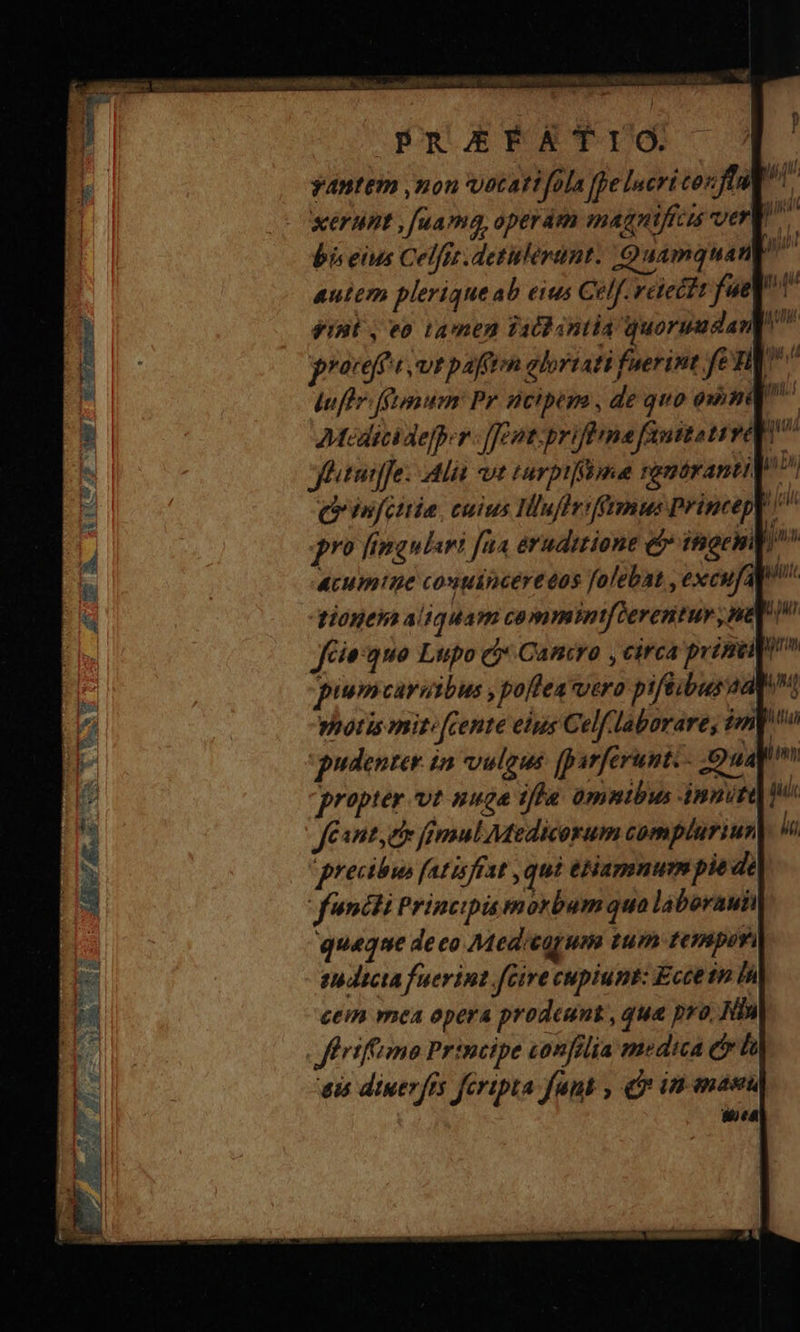 PRÆFATIO.
rantem, non vocati sola spe lucri conflu
xerunt, suamq, operam magnificis ver
bis eius Celsit. detulerunt. Quamquam
autem plerique ab eius Cels. reiecti fue
rint, eo tamen iactantia quorundam
processit, ut passim gloriati fuerint se Il
lustrissimum Principem, de quo omnes
Medici desperassent pristinæ sanitati re
stituisse. Alii vt turpissimæ ignorantiæ
& inscitiæ, cuius Illustrissimus Princeps
pro singulari sua eruditione & ingenii
acumine conuincere eos solebat, excusa
tionem aliquam comminiscerentur, ne
scio quo Lupo & Cancro, circa princi
pium carnibus, postea vero piscibus ad
motis mitescente eius Cels. laborare, im
pudenter in vulgus sparserunt. Qua
propter vt nugæ istæ omnibus innote
scant, & simul Medicorum complurium
precibus satisfiat, qui etiamnum pie de
functi Principis morbum quo laborauit
quæque de eo Medicorum tum temporis
iudicia fuerint scire cupiunt: Ecce in lu
cem mea opera prodeunt, quæ pro Illu
strissimo Principe consilia medica & lo
cis diuersis scripta sunt, & in manus